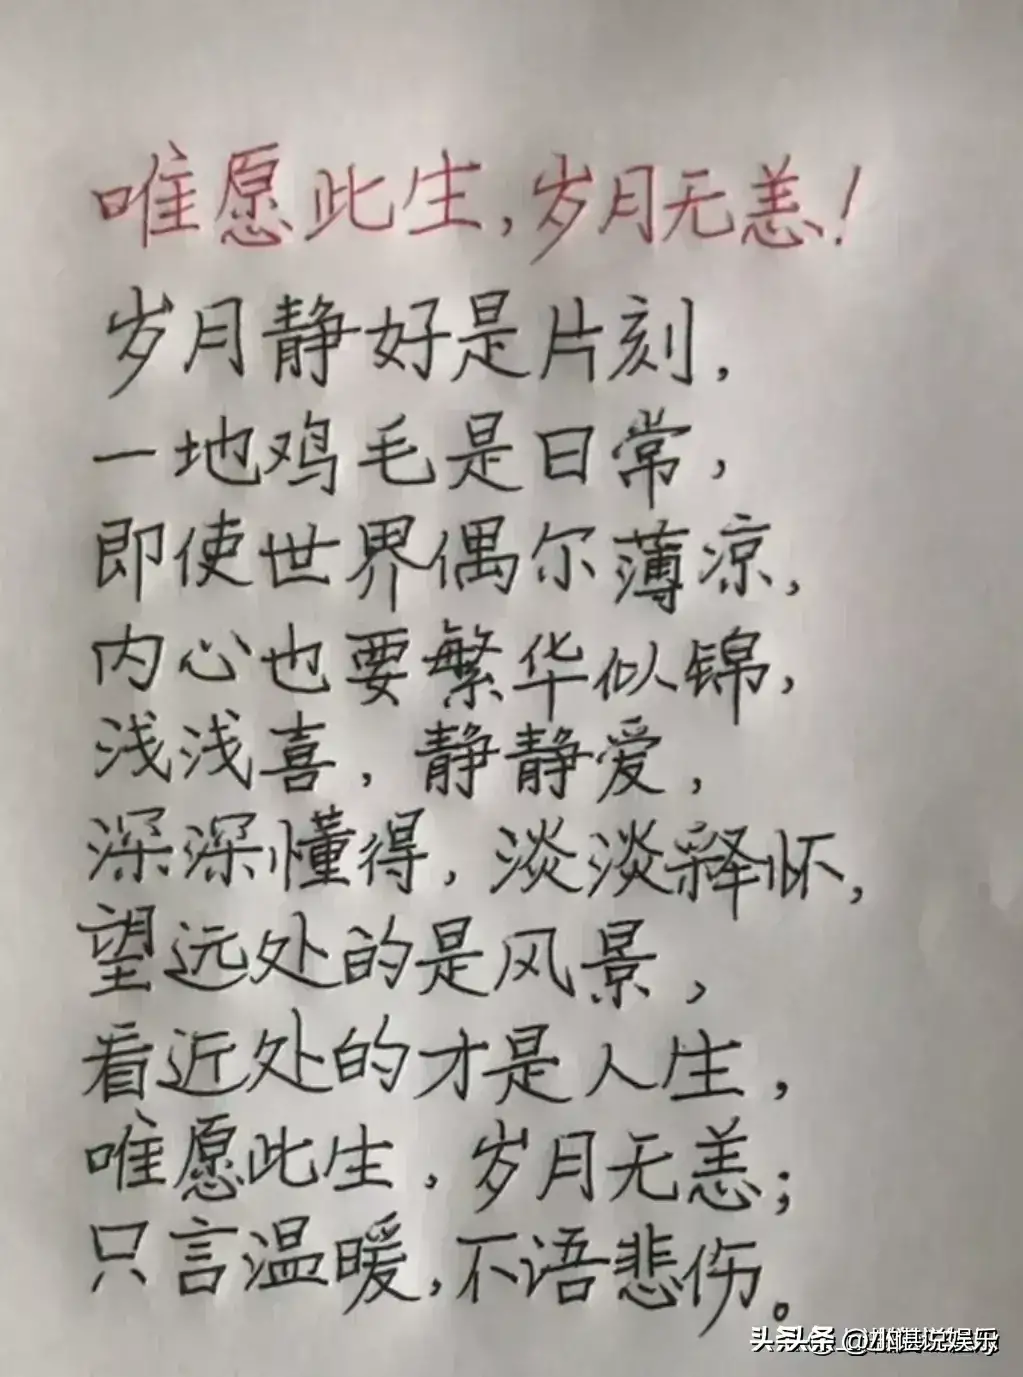 唯愿此生,岁月无恙!
岁月静好是片刻,
一地鸡毛是日常,
即使世界偶尔薄凉,
内心也要繁华似锦,
浅浅喜,静静爱,
深深懂得,淡淡释怀,
望远处的是风景,
看近处的才是人生,
唯愿此生,岁月无恙;
只言温暖,不语悲伤。
头条 @小谌说娱乐